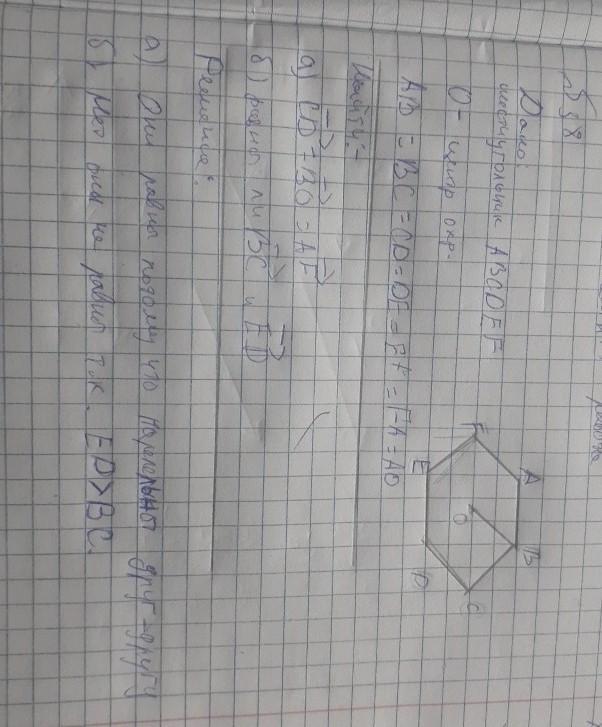 №558
Дано:
шестиугольник ABCDEF
O - центр окр.
AB = BC = CD = DE = EF = FA = AO
Найти:
а) CD = BO = AF
б) равны ли BC и ED
Решение:
а) Они равны потому что паралельны друг-другу
б) Нет они не равны т.к. ED>BC.
A
B
C
D
E
F
O